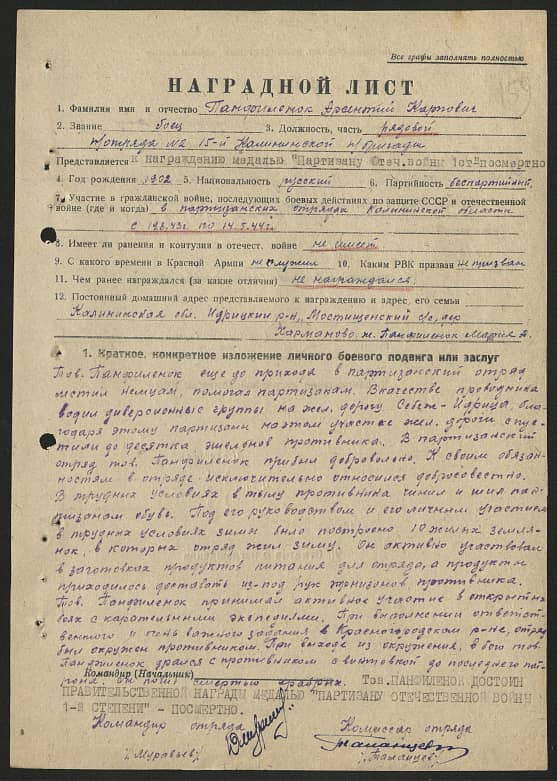 Все графы заполнять полностью
НАГРАДНОЙ ЛИСТ
1. Фамилия имя и отчество Панфиленок Арсентий Карпович
2. Звание боец 3. Должность, часть рядовой
п/отряда №2 15-й Калининской п/бригады
Представляется к награждению медалью "Партизану Отеч.войны 1ст-"посмертно
4. Год рождения 1902 5. Национальность русский 6. Партийность беспартийный
7. Участие в гражданской войне, последующих боевых действиях по защите СССР и отечественной
войне (где и когда) в партизанских отрядах Калининской области
по 14.5.44г.
8. Имеет ли ранения и контузии в отечест. войне не имеет
9. С какого времени в Красной Армии не служил 10. Каким РВК призван не призван
11. Чем ранее награждался (за какие отличия) не награждался
12. Постоянный домашний адрес представляемого к награждению и адрес, его семьи
Калининская обл. Идрицкий р-н, Мостищенский с/с, дер
Харманово ж. Панфиленок Мария
1. Краткое, конкретное изложение личного боевого подвига или заслуг
Тов. Панфиленок еще до прихода в партизанский отряд
мстил немцам, помогал партизанам. В качестве проводника
водил диверсионные группы на жел. дорогу Себеж-Идрица, бла-
годаря этому партизаны на этом участке жел. дороги спус-
тили до десятка эшелонов противника. В партизанский
отряд тов. Панфиленок прибыл добровольно. К своим обязан-
ностям в отряде исключительно относился добросовестно.
В трудных условиях в тылу противника чинил и шил пар-
тизанам обувь. Под его руководством и его личным участием
в трудных условиях зимы было построено 10 жилых земля-
нок, в которых отряд жил зиму. Он активно участвовал
в заготовках продуктов питания для отряда, а продукты
приходилось доставать из-под рук гарнизонов противника.
Тов. Панфиленок принимал активное участие в открытых
боях с карательными экспедиями. При выполнении ответст-
венного и очень важного задания в Красногородском р-не, отряд
был окружен противником. При выходе из окружения, в бою тов.
Панфиленок дрался с противником с винтовкой до последнего пат-
рона. он погиб смертью храбрых.
Командир (Начальник) Тов. ПАНФИЛЕНОК ДОСТОИН
ПРАВИТЕЛЬСТВЕННОЙ НАГРАДЫ МЕДАЛЬЮ "ПАРТИЗАНУ ОТЕЧЕСТВЕННОЙ ВОЙНУ
1-й СТЕПЕНИ" - ПОСМЕРТНО.
Командир отряда Комиссар отряда
/Муравьев/ /Таланцев/